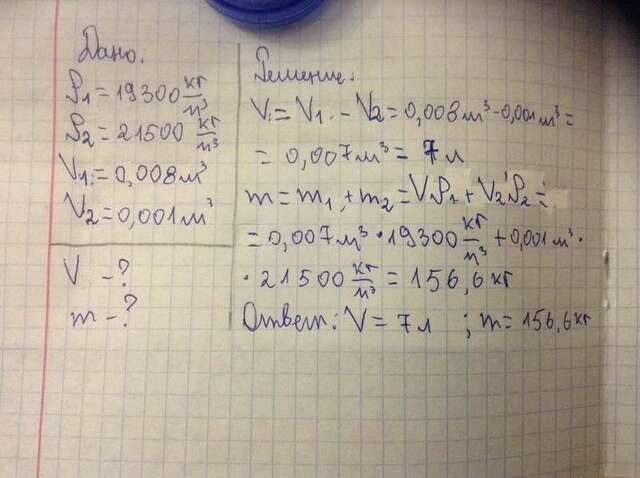 Дано.
ρ1 = 19300 кг/м³
ρ2 = 21500 кг/м³
V1 = 0,008 м³
V2 = 0,001 м³
V - ?
m - ?
Решение.
V = V1 - V2 = 0,008 м³ - 0,001 м³ =
= 0,007 м³ = 7 л
m = m1 + m2 = Vρ1 + V2ρ2 =
= 0,007 м³ · 19300 кг/м³ + 0,001 м³ ·
· 21500 кг/м³ = 156,6 кг
Ответ: V = 7 л ; m = 156,6 кг